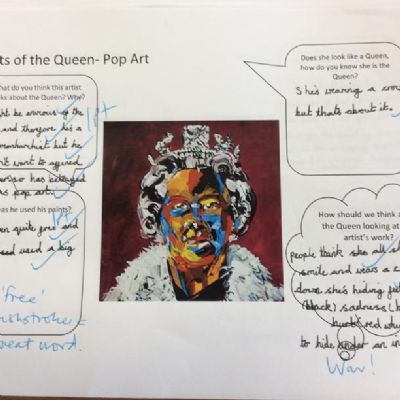 ts of the Queen- Pop Art
hat do you think this artist
ks about the Queen? Why?
1pt
ht be anxious of the
and therefore is a
but he
n't want to offend
has
as pop art.
as he used his paints?
en quite free and
used a big
'free'
brushstroke =
reat word.
Does she look like a Queen,
how do you know she is the
Queen?
She's wearing a cro
but thats about it.
How should we think a
the Queen looking at
artist's work?
people think she all
smile and wears a c
down she's hiding
black) sadness (b
red whi
to hide under an in
Wow!